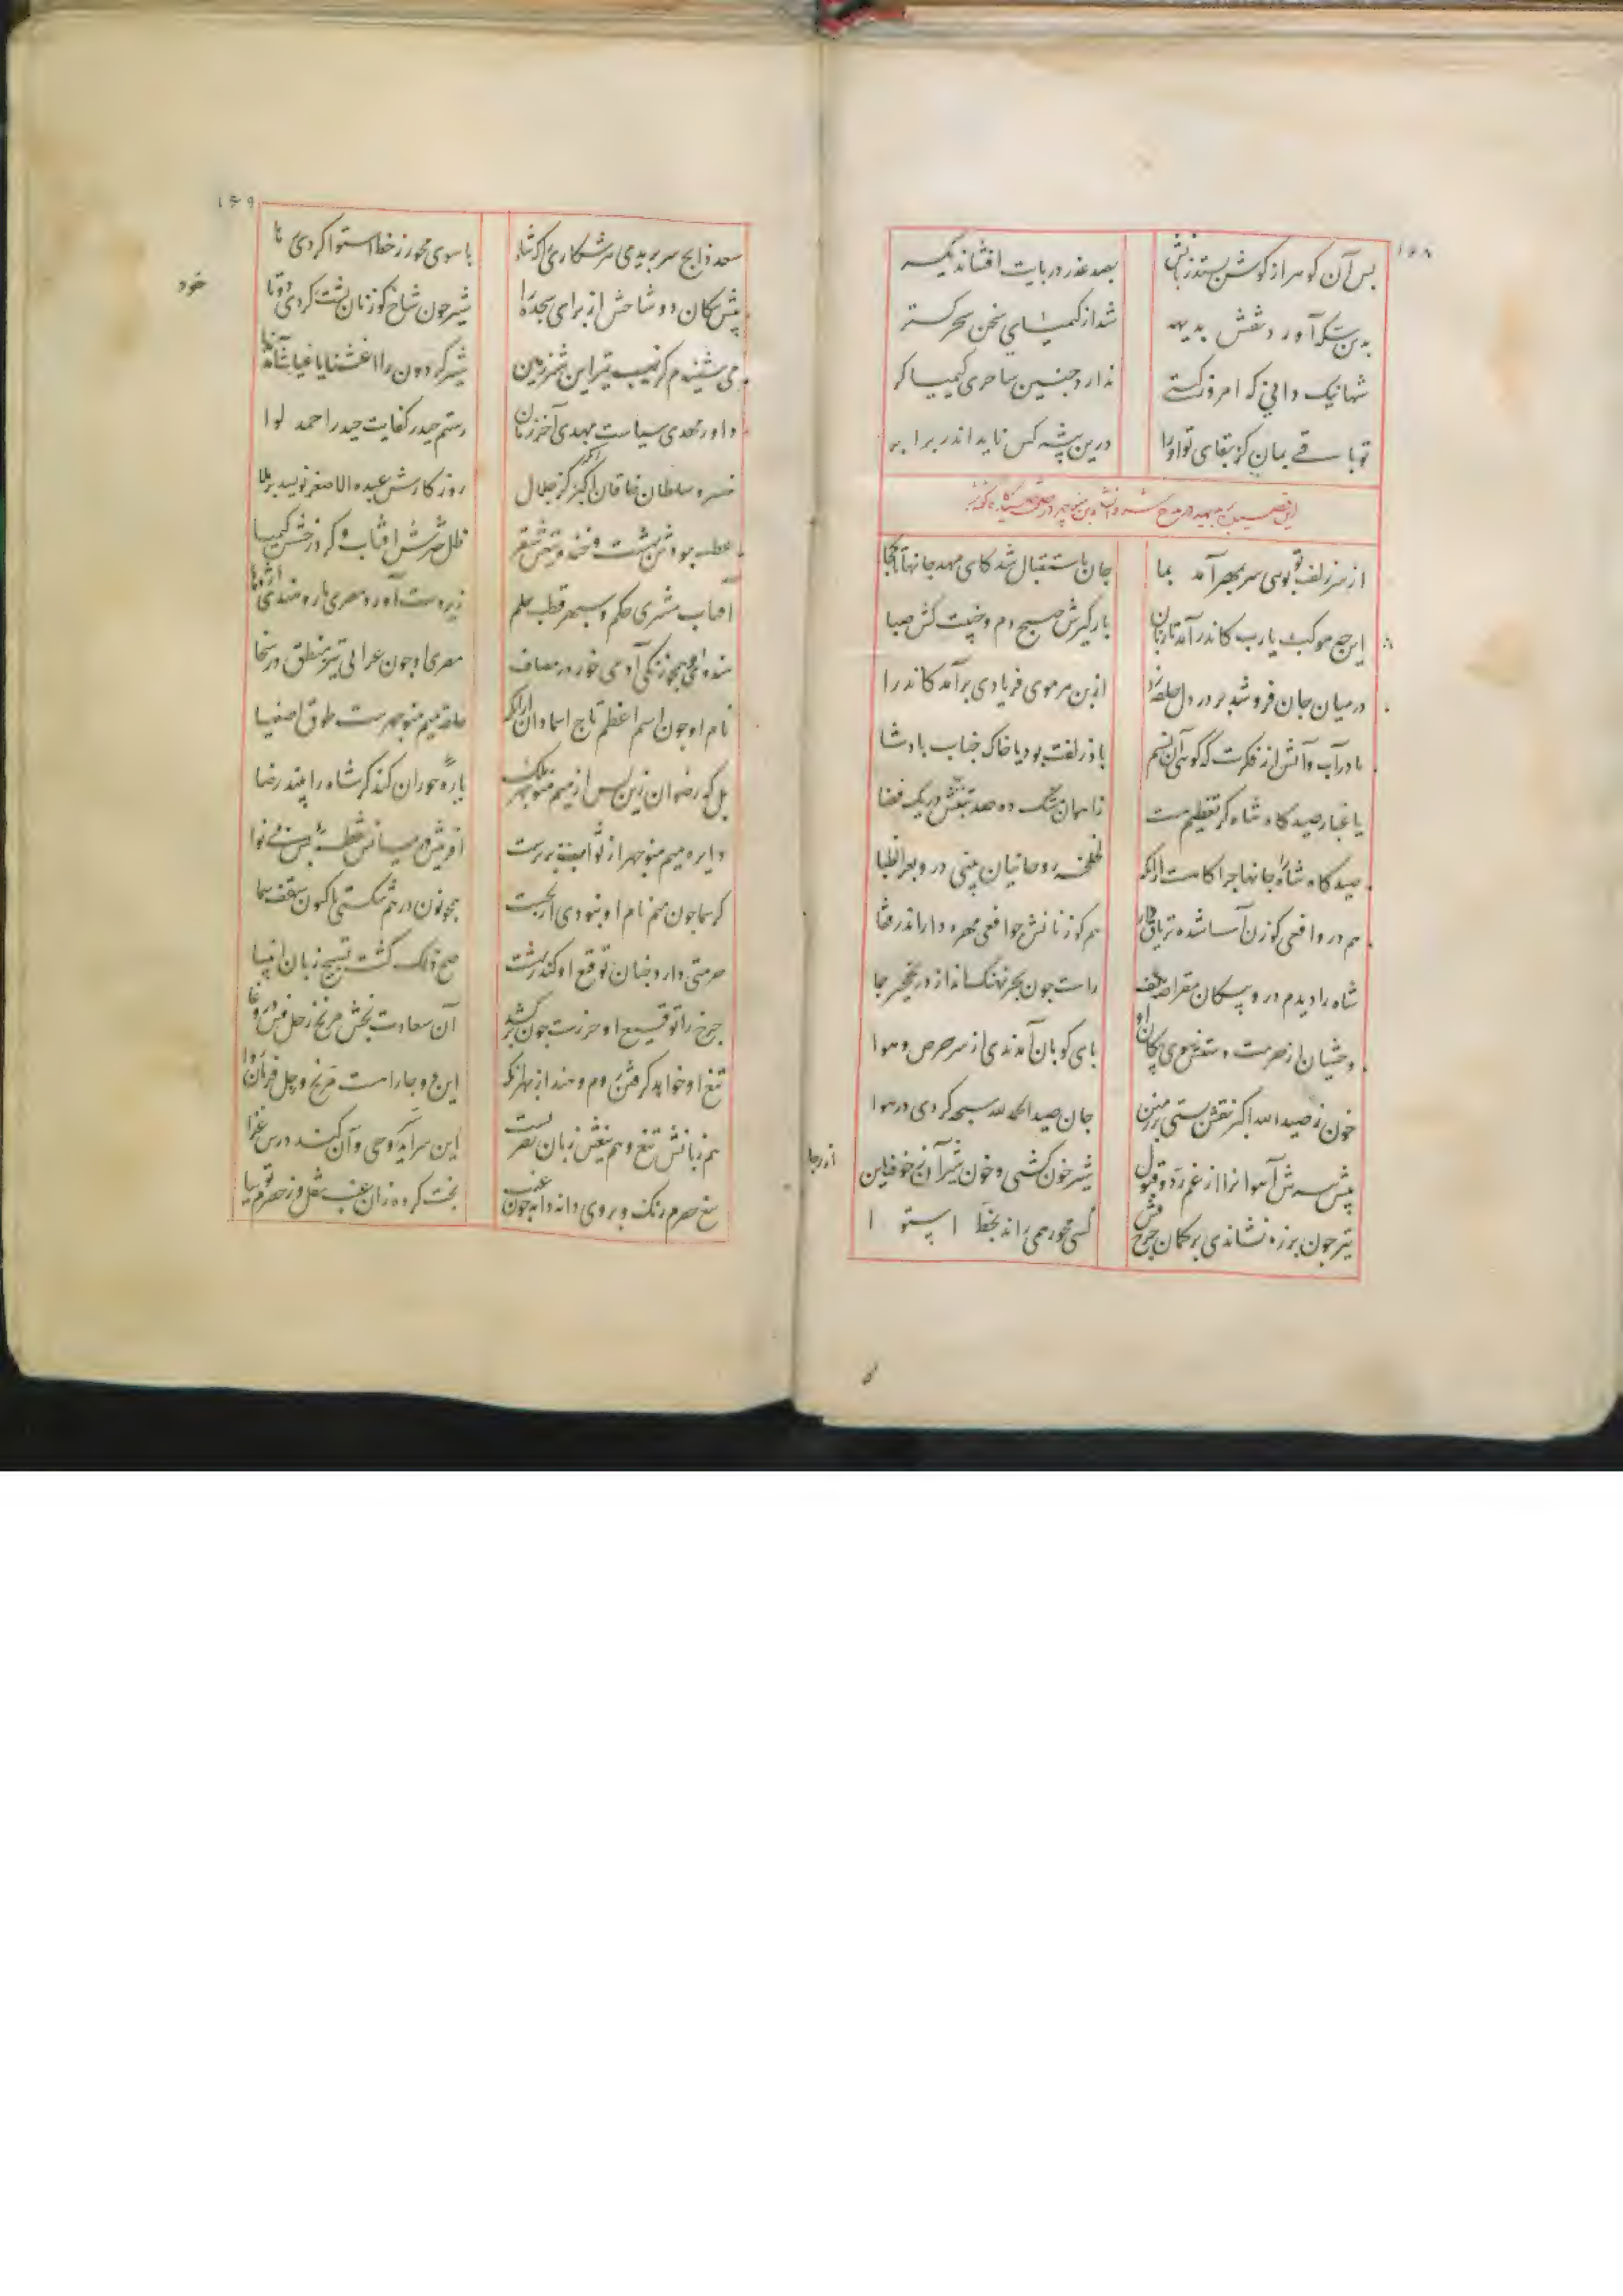 ۱۶۸
بس آن کوهر از کوشن بستد زبانش بصد عذر در پایت افشاند یکسر
بدین شکر آورد شعش بدیهه شد از کیمیای سخن سحر کستر
شها نیک دانی که امروز کستی ندارد چنین ساحری کیمیا کر
تو باقی بمان کز بقای تو او را درین پیشه کس ناید اندر برابر
این قصیده در مدح منوچهر
از سر زلف تو بوی سر بمهر آمد بما جان باستقبال شد کای مهد جانها تا کجا
این چه موکبست یارب کاندر آمد تازیان بارکیرش صبح دم و جنیبت کش صبا
در میان جان فروشد بر در دل حلقه زد از بن هر موی فریادی برآمد کاندرا
ما در آب و آتش از فکرت که گویی آن نسیم باد زلفت بود یا خاک جناب پادشا
یا غبار صیدکاه شاه کز تعظیم هست زاهمان تنک ده صد تبتش در یک فضا
صیدکاه شاه جانها را چراکاهست ازانکه لخلخه روحانیان بینی درو بعر الظبا
هم درو افعی کوزن آسا شده تریاق دار هم کوزنانش چو افعی مهره دار اندر قفا
شاه را دیدم درو پیکان مقراضه بکف راست چون بحر نهنک انداز در نخجیر جا
وحشیان از حرمت دستش سوی پیکان او پای کوبان آمدندی از سر حرص و هوا
خون صید الله اکبر نقش بستی بر زمین جان صید الحمد لله سبحه کردی در هوا
پیش تیرش آهوانرا از غم رد و قبول شیر خون کشتی و خون شیر آن ز خوف این
از رجا
تیر چون بر زه نشاندی بر کمان چرخ فش کفتی محور همی راند بخط استوا
۱۶۹
سعد ذابح سر بریدی هر شکاری را که شاه با سوی محور ز خط استوا کردی ها
پیش پیکان دو شاخش از برای سجده را شیر چون شاخ کوزنان پشت کردی دوتا
خود
می شنیدم کز نهیب تیر این شیر زمین شیر گردون را اغثنا یا غیاث آمد ندا
داور مهدی سیاست مهدی آخر زمان رستم حیدر کفایت حیدر احمد لوا
خسرو سلطان نشان خاقان اکبر کز جلال روزکارش عبده الاصغر نویسد برملا
عطسه جودش بهشت و خنده تیغش سقر ظل چترش افتاب و کرد رخشش کیمیا
افتاب مشتری حکم و سپهر قطب حلم زیر دست آورده مصری مار و هندی اژدها
هندو او همچو زنکی آدمی خور در مصاف مصری او چون عرابی تیز منطق در سخا
نام او چون اسم اعظم تاج اسما دان ازانکه حلقه میم منوچهرست طوق اصفیا
بل که رضوان زین پس از میم منوچهر ملک یاره حوران کند کر شاه را بیند رضا
دایره میم منوچهر از ثوابت برترست افرینش در میانش نقطه بس بی نوا
کر سما چون میم نام او نبودی از نخست همچو نون درهم شکستی تا کنون سقف سما
حرمتی دارد چنان توقیع او کندر بهشت صح ذلک کشت تسبیح زبان انبیا
چرخ را توقیع او حرزست چون برکشد آن سعادت بخش مریخ زحل فش در وغا
تیغ او خواهد کرفتن روم و هند از بهر انکه این دو جا را هست مریخ و زحل فرمان روا
هم زبانش تیغ و هم تیغش زبان نصرتست این سراید وحی و آن کند درس غزا
تیغ حصرم رنک و بر وی دانه دانه چون عنب بخت کرده زان عنب نقل و ز حصرم توتیا